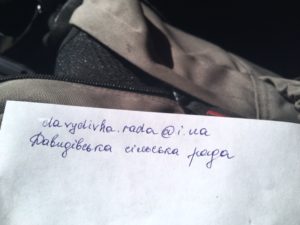 davydivka.rada@i.ua
Давидівська сільська рада